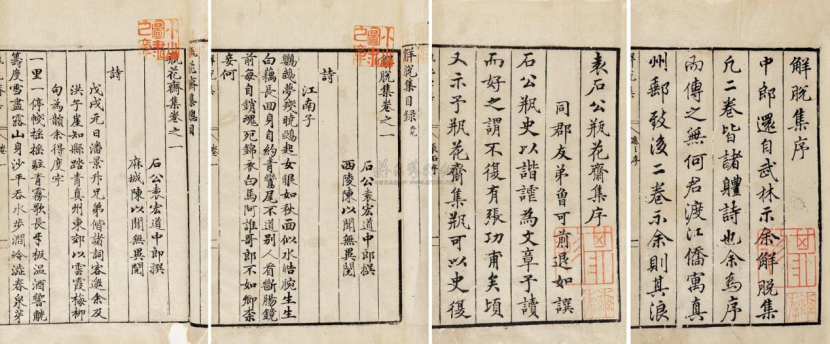 解脫集序
中郎還自武林示余解脫集
凡二卷皆諸體詩也余為序
而傳之無何君渡江僑寓真
州郵致後二卷示余則其浪
袁石公瓶花齋集序
同郡友弟魯可前退如譔
石公瓶史以諧謔為文章予讀
而好之謂不復有張功甫矣頃
又示予瓶花齋集瓶可以史復
解脫集目錄
解脫集卷之一
石公袁宏道中郎撰
西陵陳以聞無異閱
詩
江南子
鸚鵡夢殘曉鵶起女眼如秋面似水皓腕生生
白藕長回身自約青鸞尾不道別人看斷腸鏡
前每自銷魂死錦衣白馬阿誰哥郎不如卿奈
妾何
瓶花齋集卷之一
石公袁宏道中郎撰
麻城陳以聞無異閱
詩
戊戌元日潘景升兄弟偕諸詞客邀余及
洪子崖知縣踏青真州東郊以雲霞梅柳
句為韻余得度字
一里一停幰搖搖駐青霧歌長手板温酒響觥
籌度雪盡露山身沙平吞水步澗冷澁春泉芽